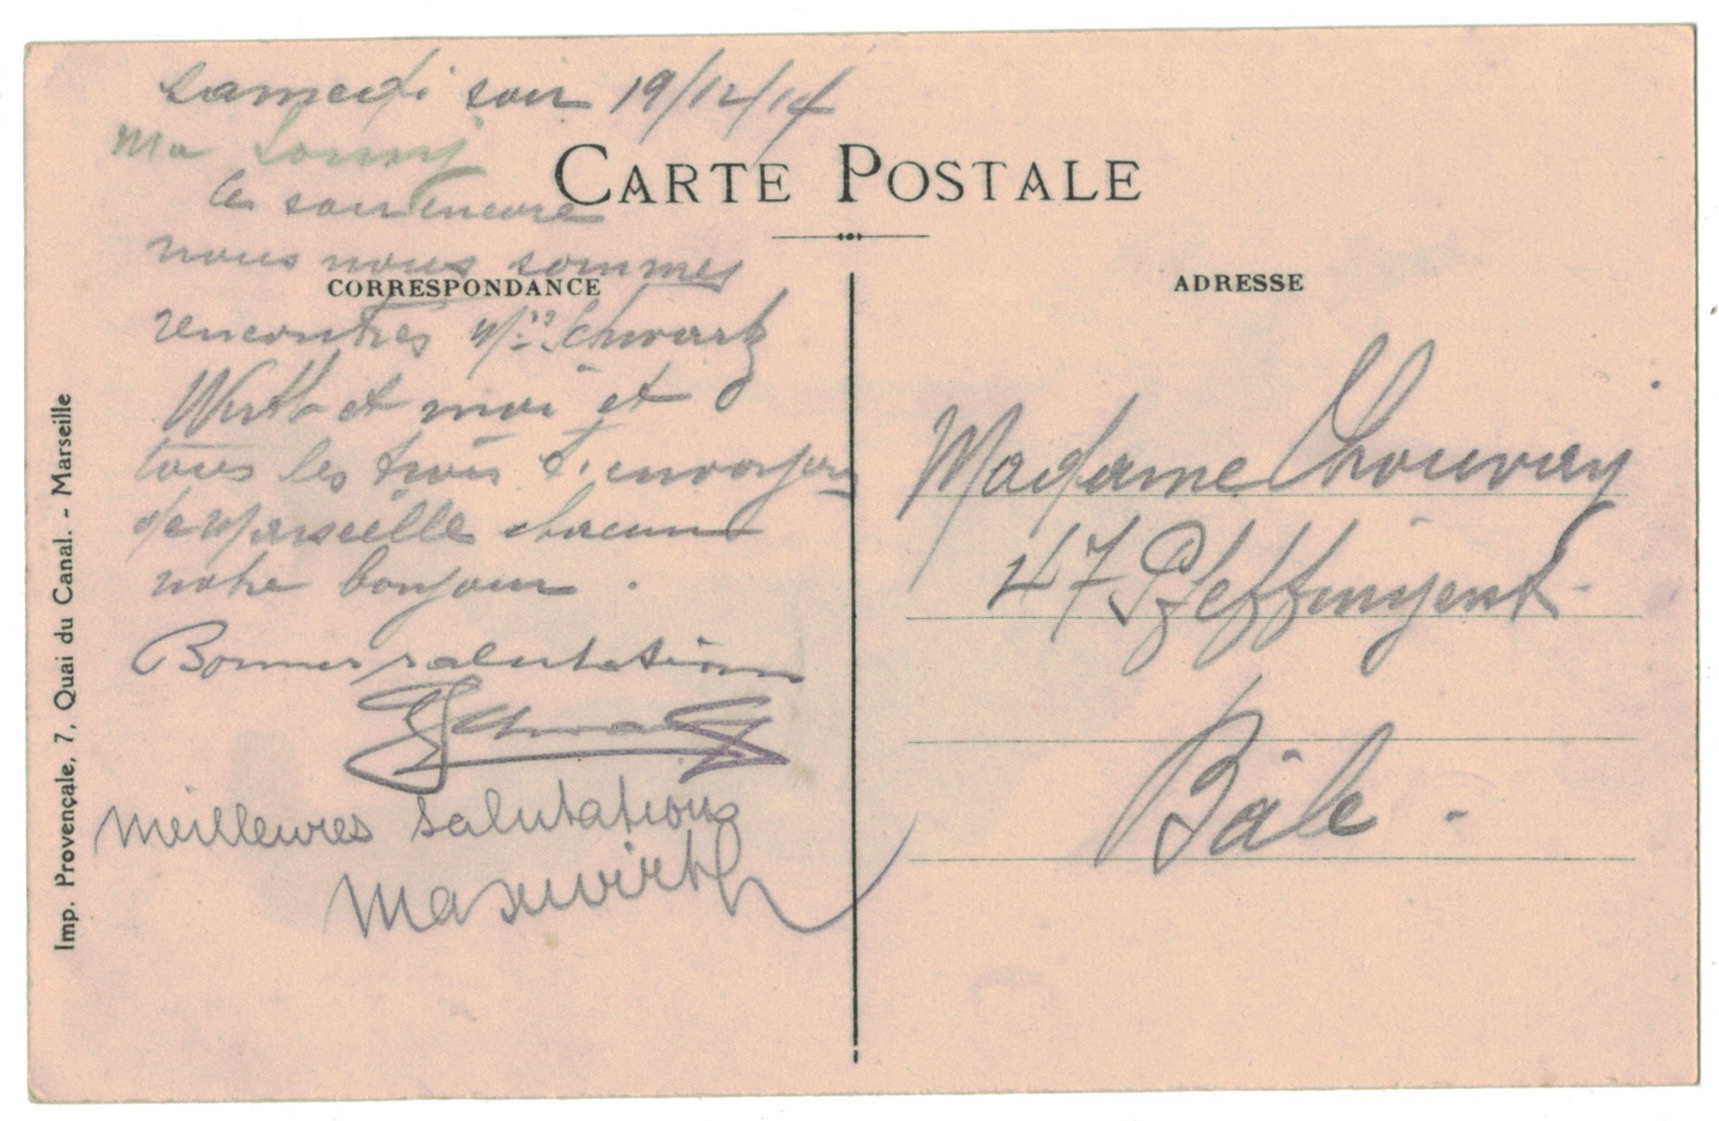 samedi soir 19/12/14
Ma
CARTE POSTALE
Ce soir encore
nous nous sommes
CORRESPONDANCE
rencontrés Mrs Schwartz
Wirth et moi et
tous les trois t'envoyons
de Marseille chacun
notre bonjour.
Bonnes salutations
Schwartz
Meilleures salutations
Max Wirth
Imp. Provençale, 7, Quai du Canal. - Marseille
ADRESSE
Madame Chouvay
47 Pfeffingerst-
Bâle -